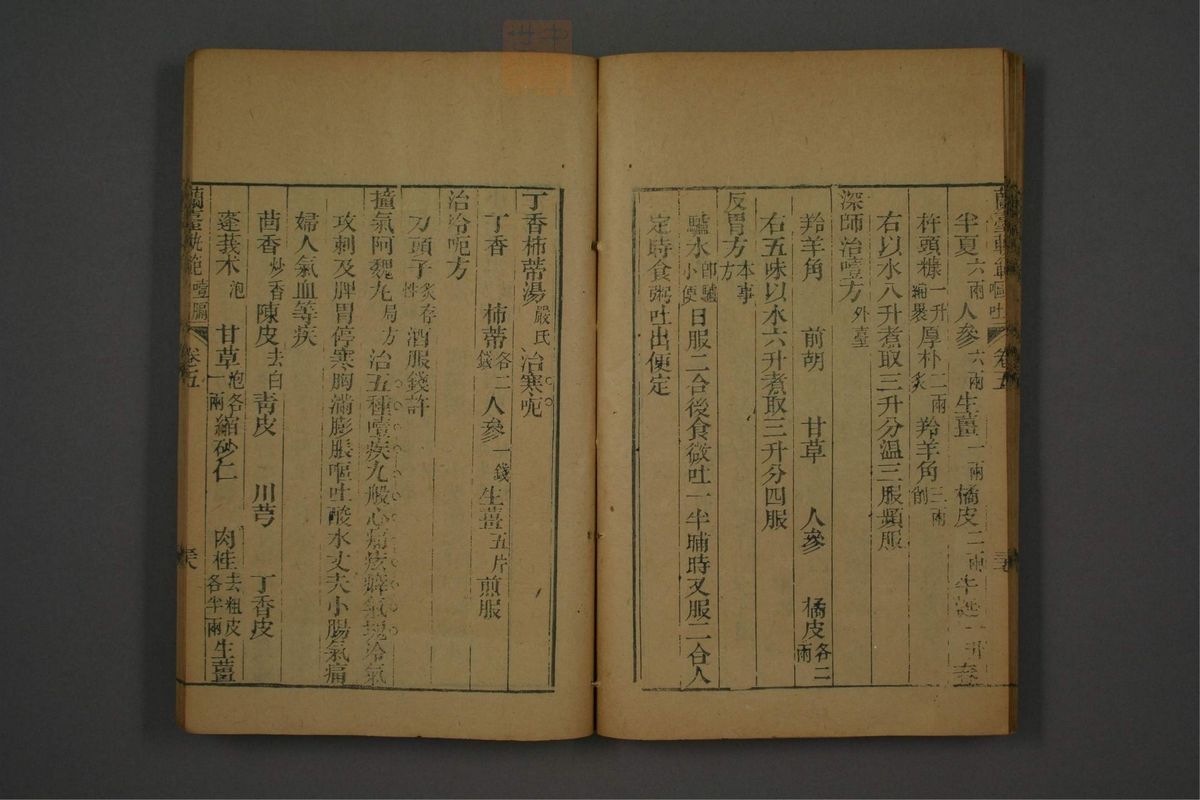 半夏六兩人參六兩生薑一兩橘皮二兩
杵頭糠一升綿裹厚朴二兩炙羚羊角三兩削
右以水八升煮取三升分溫三服頻服
深師治噎方外臺
羚羊角 前胡 甘草 人參 橘皮各二兩
右五味以水六升煮取三升分四服
反胃方本事方
驢水即驢小便日服二合後食微吐一半晡時又服二合人
定時食粥吐出便定
丁香柿蒂湯嚴氏治寒呃
丁香 柿蒂各二錢人參一錢生薑五片煎服
治冷呃方
刀頭子炙存性酒服錢許
撞氣阿魏丸局方治五種噎疾九般心痛痃癖氣塊冷氣
攻刺及脾胃停寒胸滿膨脹嘔吐酸水丈夫小腸氣痛
婦人氣血等疾
茴香炒香陳皮去白青皮 川芎 丁香皮
蓬莪朮泡 甘草炮各一兩縮砂仁 肉桂去粗皮各半兩生薑
蘭臺軌範噎膈 卷五 三六